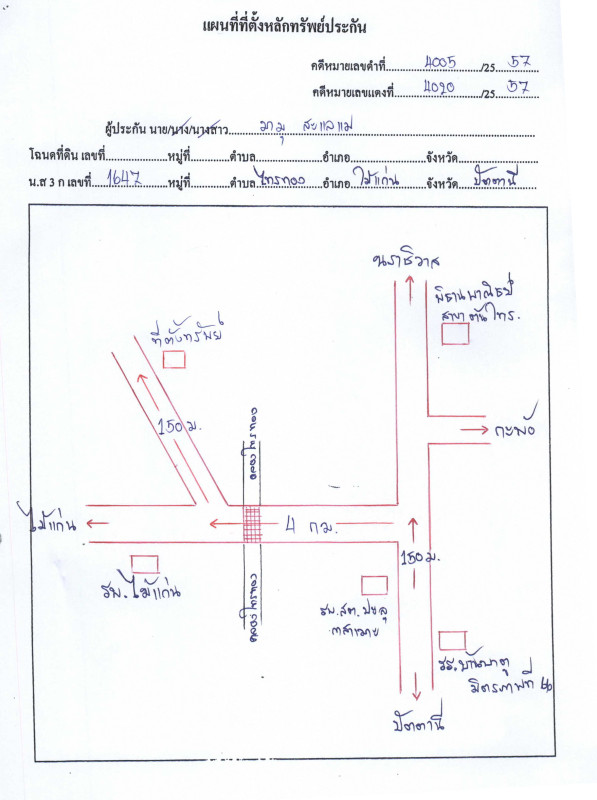 แผนที่ที่ตั้งหลักทรัพย์ประกัน
คดีหมายเลขดำที่ 4005 /25 57
คดีหมายเลขแดงที่ 4020 /25 57
ผู้ประกัน นาย/นาง/นางสาว
โฉนดที่ดิน เลขที่ หมู่ที่ ตำบล อำเภอ จังหวัด
น.ส 3 ก เลขที่ 1647 หมู่ที่ ตำบล ไทรทอง อำเภอ ไม้แก่น จังหวัด ปัตตานี
นราธิวาส
พิธานพาณิชย์
สาขา ต้นไทร.
ที่ตั้งทรัพย์
150 ม.
กะพ้อ
ไม้แก่น
4 กม.
150 ม.
รพ.ไม้แก่น
รพ.สต.
รร.บ้านพาตุ
มิตรภาพที่ 66
ปัตตานี